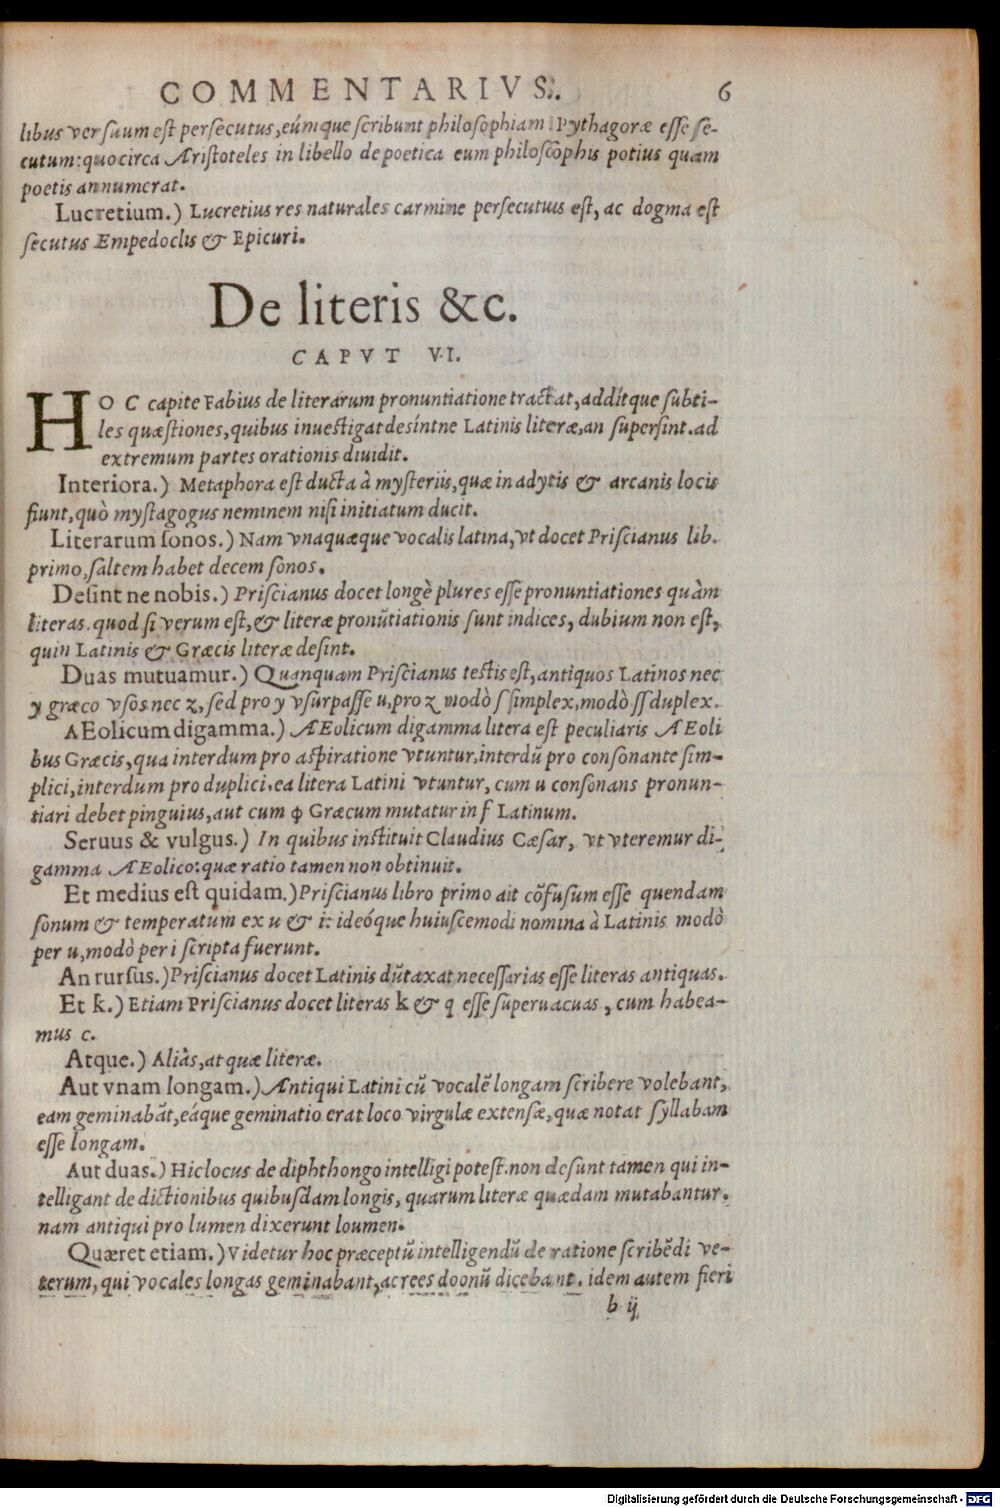 COMMENTARIVS. 6
libus versuum est persecutus, eúmque scribunt philosophiam Pythagoræ esse se-
cutum: quocirca Aristoteles in libello de poetica eum philosophis potius quam
poetis annumerat.
Lucretium.) Lucretius res naturales carmine persecutus est, ac dogma est
secutus Empedoclis & Epicuri.
De literis &c.
CAPVT VI.
HOC capite Fabius de literarum pronuntiatione tractat, addítque subti-
les quæstiones, quibus inuestigat desíntne Latinis literæ, an supersint. ad
extremum partes orationis diuidit.
Interiora.) Metaphora est ducta à mysteriis, quæ in adytis & arcanis locis
fiunt, quò mystagogus neminem nisi initiatum ducit.
Literarum sonos.) Nam vnaquæque vocalis latina, vt docet Priscianus lib.
primo, saltem habet decem sonos.
Desint ne nobis.) Priscianus docet longè plures esse pronuntiationes quàm
literas. quod si verum est, & literæ pronũtiationis sunt indices, dubium non est,
quin Latinis & Græcis literæ desint.
Duas mutuamur.) Quanquam Priscianus testis est, antiquos Latinos nec
y græco vsos nec z, sed pro y vsurpasse u, pro z modò s simplex, modò ss duplex.
AEolicum digamma.) AEolicum digamma litera est peculiaris AEoli
bus Græcis, qua interdum pro aspiratione vtuntur, interdũ pro consonante sim-
plici, interdum pro duplici. ea litera Latini vtuntur, cum u consonans pronun-
tiari debet pinguius, aut cum φ Græcum mutatur in f Latinum.
Seruus & vulgus.) In quibus instituit Claudius Cæsar, vt vteremur di-
gamma AEolico: quæ ratio tamen non obtinuit.
Et medius est quidam.) Priscianus libro primo ait cõfusum esse quendam
sonum & temperatum ex u & i: ideóque huiuscemodi nomina à Latinis modò
per u, modò per i scripta fuerunt.
An rursus.) Priscianus docet Latinis dũtaxat necessarias esse literas antiquas.
Et k.) Etiam Priscianus docet literas k & q esse superuacuas, cum habea-
mus c.
Atque.) Aliàs, at quæ literæ.
Aut vnam longam.) Antiqui Latini cũ vocalẽ longam scribere volebant,
eam geminabãt, eáque geminatio erat loco virgulæ extensæ, quæ notat syllabam
esse longam.
Aut duas.) Hic locus de diphthongo intelligi potest. non desunt tamen qui in-
telligant de dictionibus quibusdam longis, quarum literæ quædam mutabantur.
nam antiqui pro lumen dixerunt loumen.
Quæret etiam.) Videtur hoc præceptũ intelligendũ de ratione scribẽdi ve-
terum, qui vocales longas geminabant, ac rees doonũ dicebant. idem autem fieri
b ij
Digitalisierung gefördert durch die Deutsche Forschungsgemeinschaft - DFG